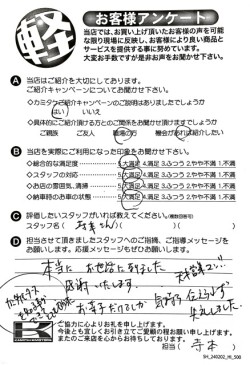 軽
お客様アンケート
当店では、お買い上げ頂いたお客様の声を可能
な限り現場に反映し、お客様により良い商品と
サービスを提供する事に努めています。
大変お手数ですが是非お声をお聞かせ下さい。
A 当店はご紹介を大切にしてあります。
ご紹介キャンペーンについてお聞かせ下さい。
◇カミタケご紹介キャンペーンのご説明はありましたでしょうか
はい いいえ
◇具体的にご紹介頂ける方とのご関係をお聞かせ頂けますでしょうか
ご親族 ご友人 職場の方 機会があれば紹介したい
B 当店を実際にご利用になった印象をお聞かせ下さい。
◇総合的な満足度 5.大満足 4.満足 3.ふつう 2.やや不満 1.不満
◇スタッフの対応 5.大満足 4.満足 3.ふつう 2.やや不満 1.不満
◇お店の雰囲気、清掃 5.大満足 4.満足 3.ふつう 2.やや不満 1.不満
◇納車時のお車の状態 5.大満足 4.満足 3.ふつう 2.やや不満 1.不満
C 評価したいスタッフがいれば教えてください。(複数回答可)
スタッフ名( 寺本さん )( )( )
D 担当させて頂きましたスタッフへのご指摘、ご指導メッセージを
お願いします。応援メッセージもぜひお願いします。
本当に お世話になりました
感謝いたします。
お菓子だけでしか 気持ち 伝えられず
失礼しました
ご協力に心よりお礼を申し上げます。
今後とも宜しくお引き立てご愛顧の程お願い申し上げます。
またのご来店を心からお待ちしております。
担当( 寺本 )